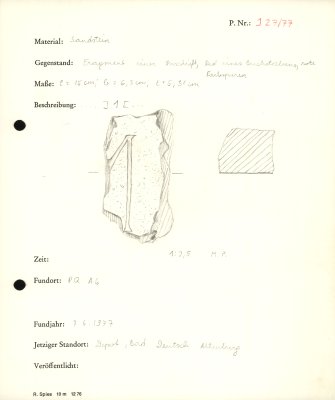 P. Nr.: I 27/77
Material: Sandstein
Gegenstand: Fragment einer Inschrift, Rest eines Buchstabens, rote
Farbspuren
Maße: L = 15 cm, B =
Beschreibung: I 1 E
1:2,5 M. P.
Zeit:
Fundort: PQ A4
Fundjahr: 1977
Jetziger Standort: Depot, Bad Deutsch Altenburg
Veröffentlicht:
R. Spies 10 m 12 76